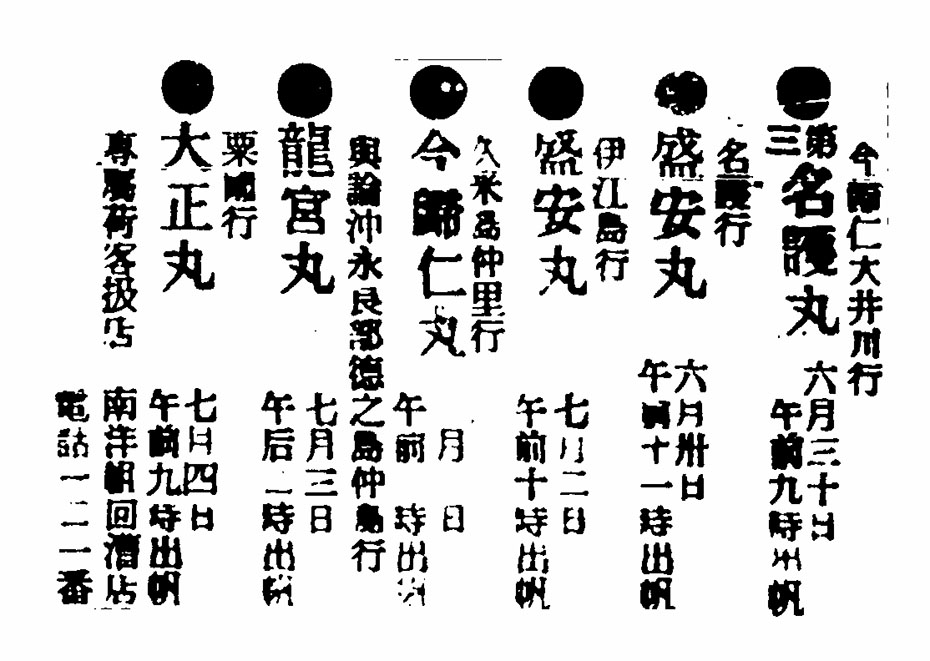 今歸仁大井川行
●第三名護丸
六月三十日
午前九時出帆
名護行
●盛安丸
六月卅日
午前十一時出帆
伊江島行
●盛安丸
七月二日
午前十時出帆
久米島仲里行
●今歸仁丸
月 日
午前 時出帆
與論沖永良部德之島仲島行
●龍宮丸
七月三日
午后二時出帆
粟國行
●大正丸
七月四日
午前九時出帆
專屬荷客扱店
南洋組回漕店
電話一二一番